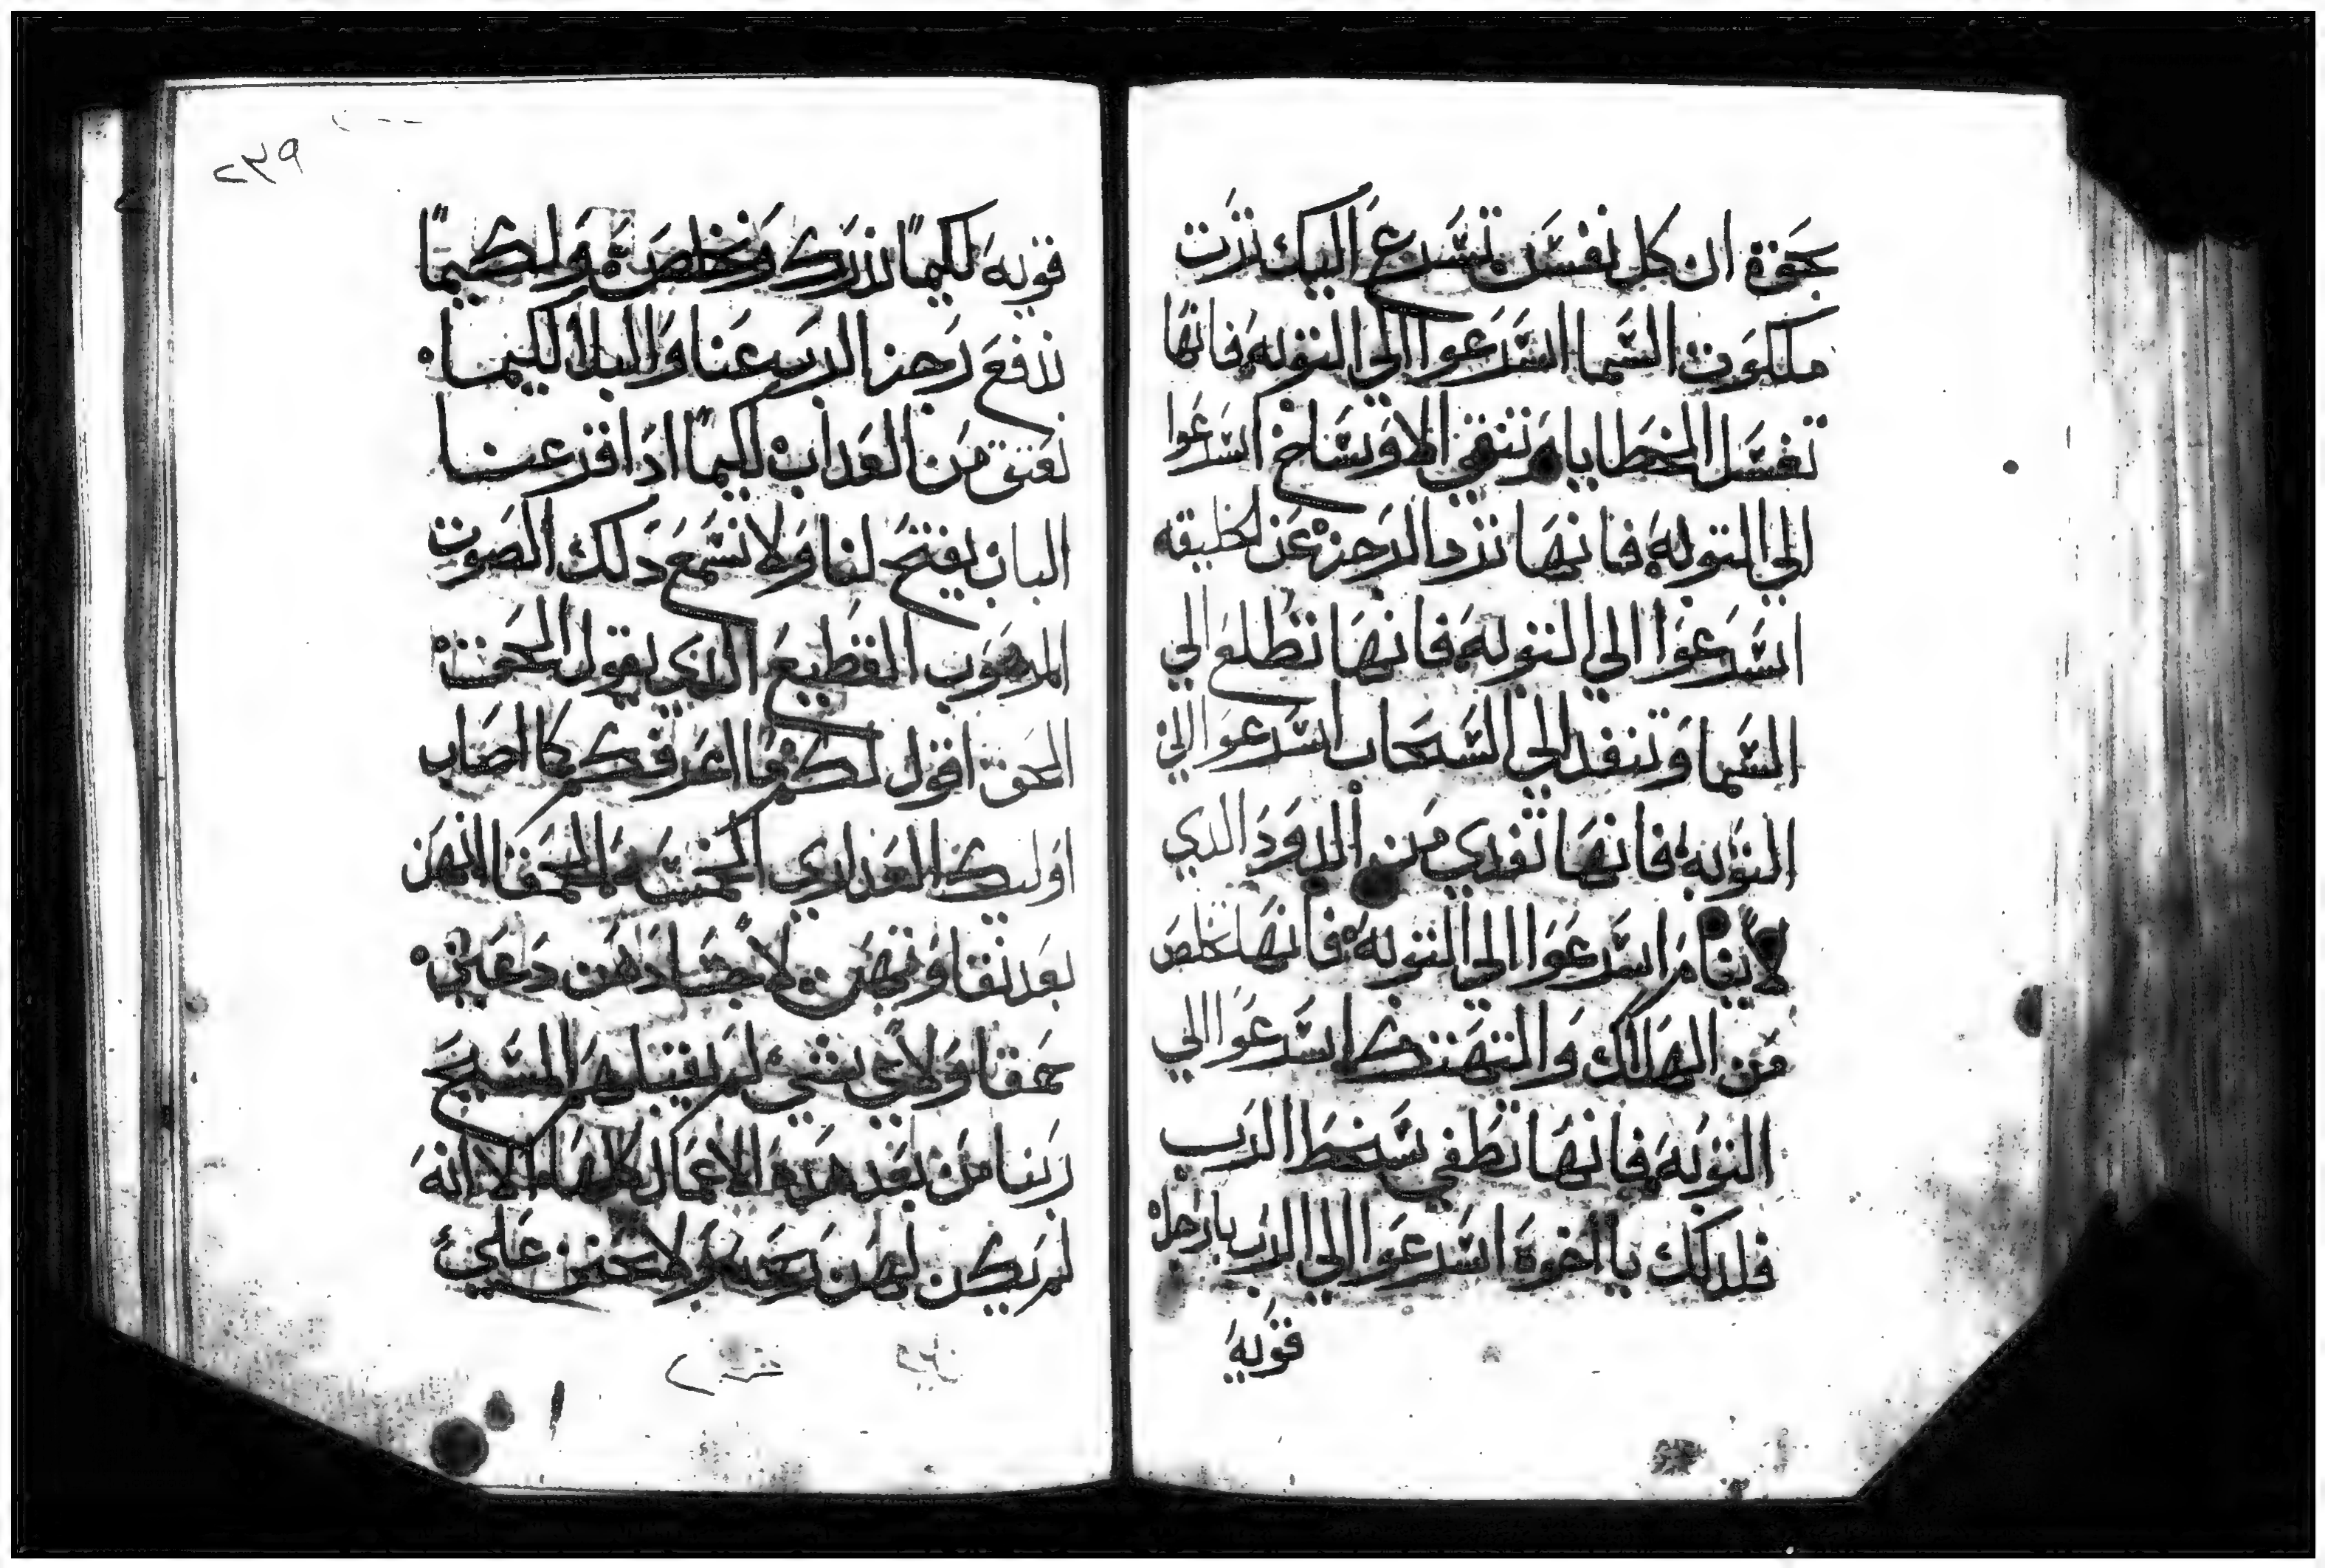 بحقوة ان كل نفس تسرع اليك ترت
ملكوت السما اسرعوا الي التوبه فانها
تغسل الخطايا وتنقي الاوساخ اسرعوا
الي التوبه فانها ترد الرجز عن الخليقه
اسرعوا الي التوبه فانها تطلع الي
السما وتنفد الي السحاب اسرعوا الي
التوبه فانها تفدي من الدود الدي
لا ينام اسرعوا الي التوبه فانها تخلص
من الهلاك والتهتك اسرعوا الي
التوبه فانها تطفي سخط الرب
فلدلك يا اخوة اسرعوا الي الرب بارجل
قويه
٢٣٩
قويه لكيما ندرك ونخلص ولكيما
ندفع رجز الرب عنا والبلا لكيما
نعتق من العداب لكيما ادا قرعنا
الباب يفتح لنا ولا نسمع دلك الصوت
المرهوب القطيع الدي يقول الحق
الحق اقول لكم ما اعرفكم كما اصاب
اوليك العداري الخمسه الحمقا لانهن
بعد نقاوتهن لاجسادهن دعين
حمقا ولاي شي لم يقبلهم المسيح
ربنا من بعد هدة الاعمال كلها الا انه
لم يكن لهن رحمه ولا تحنن علي